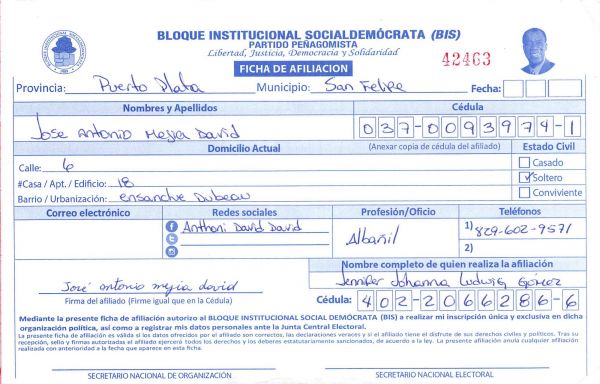 BLOQUE INSTITUCIONAL SOCIALDEMÓCRATA (BIS)
PARTIDO PEÑAGOMISTA
Libertad, Justicia, Democracia y Solidaridad
42463
FICHA DE AFILIACION
Provincia: Puerto Plata Municipio: San Felipe Fecha:
Nombres y Apellidos Cédula
Jose Antonio Mejia David 037-0093974-1
Domicilio Actual (Anexar copia de cédula del afiliado) Estado Civil
Calle: 6 Casado
#Casa / Apt. / Edificio: 18 Soltero
Barrio / Urbanización: ensanche Dubeau Conviviente
Correo electrónico Redes sociales Profesión/Oficio Teléfonos
Anthoni David David Albañil 1) 829-602-9571
2)
Nombre completo de quien realiza la afiliación
José antonio mejia david Jennifer Johanna Ludwig Gómez
Firma del afiliado (Firme igual que en la Cédula) Cédula: 402-2066286-6
Mediante la presente ficha de afiliación autorizo al BLOQUE INSTITUCIONAL SOCIAL DEMÓCRATA (BIS) a realizar mi inscripción única y exclusiva en dicha
organización política, así como a registrar mis datos personales ante la Junta Central Electoral.
La presente ficha de afiliación es válida si los datos ofrecidos por el afiliado son correctos, las declaraciones veraces y si el afiliado tiene el disfrute de sus derechos civiles y políticos. Tras su
recepción, sello y firmas autorizadas el afiliado ejercerá todos los derechos y los deberes estatutariamente sancionados, de acuerdo a ley. La presente afiliación anula cualquier afiliación
realizada con anterioridad a la fecha que aparece en esta ficha.
SECRETARIO NACIONAL DE ORGANIZACIÓN SECRETARIO NACIONAL ELECTORAL